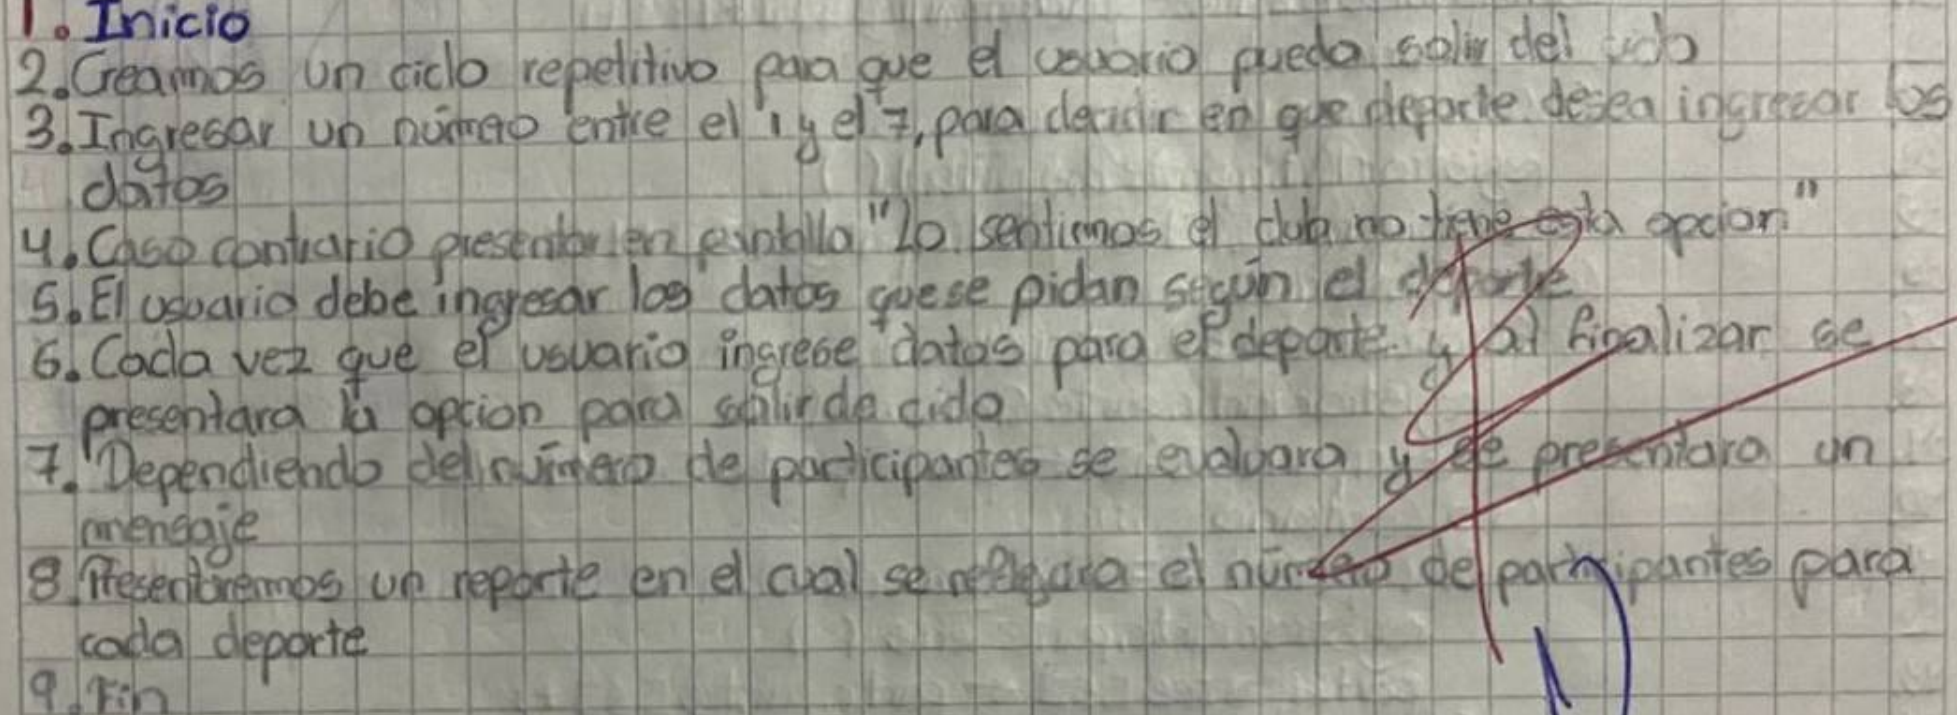 1. Inicio
2. Creamos un ciclo repetitivo para que el usuario pueda salir del
3. Ingresar un número entre el 1 y el 7, para decidir en que deporte desea ingresar los
datos
4. Caso contrario presentar en pantalla "Lo sentimos el club no tiene esta opcion"
5. El usuario debe ingresar los datos que se pidan según el deporte
6. Cada vez que el usuario ingrese datos para el deporte y al finalizar se
presentara la opcion para salir de ciclo
7. Dependiendo del número de participantes se evaluara y se presentara un
mensaje
8 Presentaremos un reporte en el cual se el número de participantes para
cada deporte
9. Fin